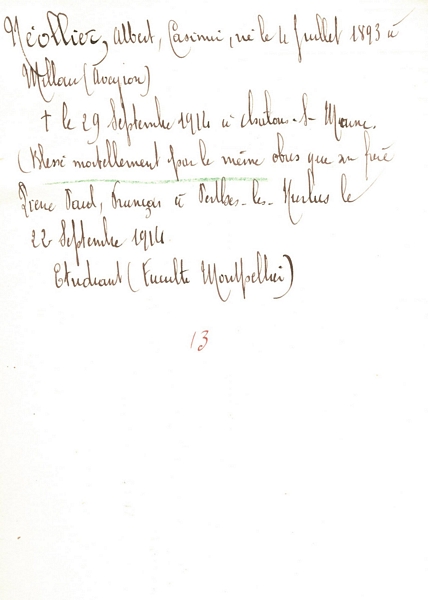 Néollier, Albert, Casimir, né le 4 Juillet 1893 à
Millau (Aveyron)
† le 29 Septembre 1914 à Chalons-S-Marne.
(Blessé mortellement par le même obus que son frère
Pierre Paul, François à Perthes-les-Hurlus le
22 Septembre 1914
Etudiant (Faculté Montpellier)
13